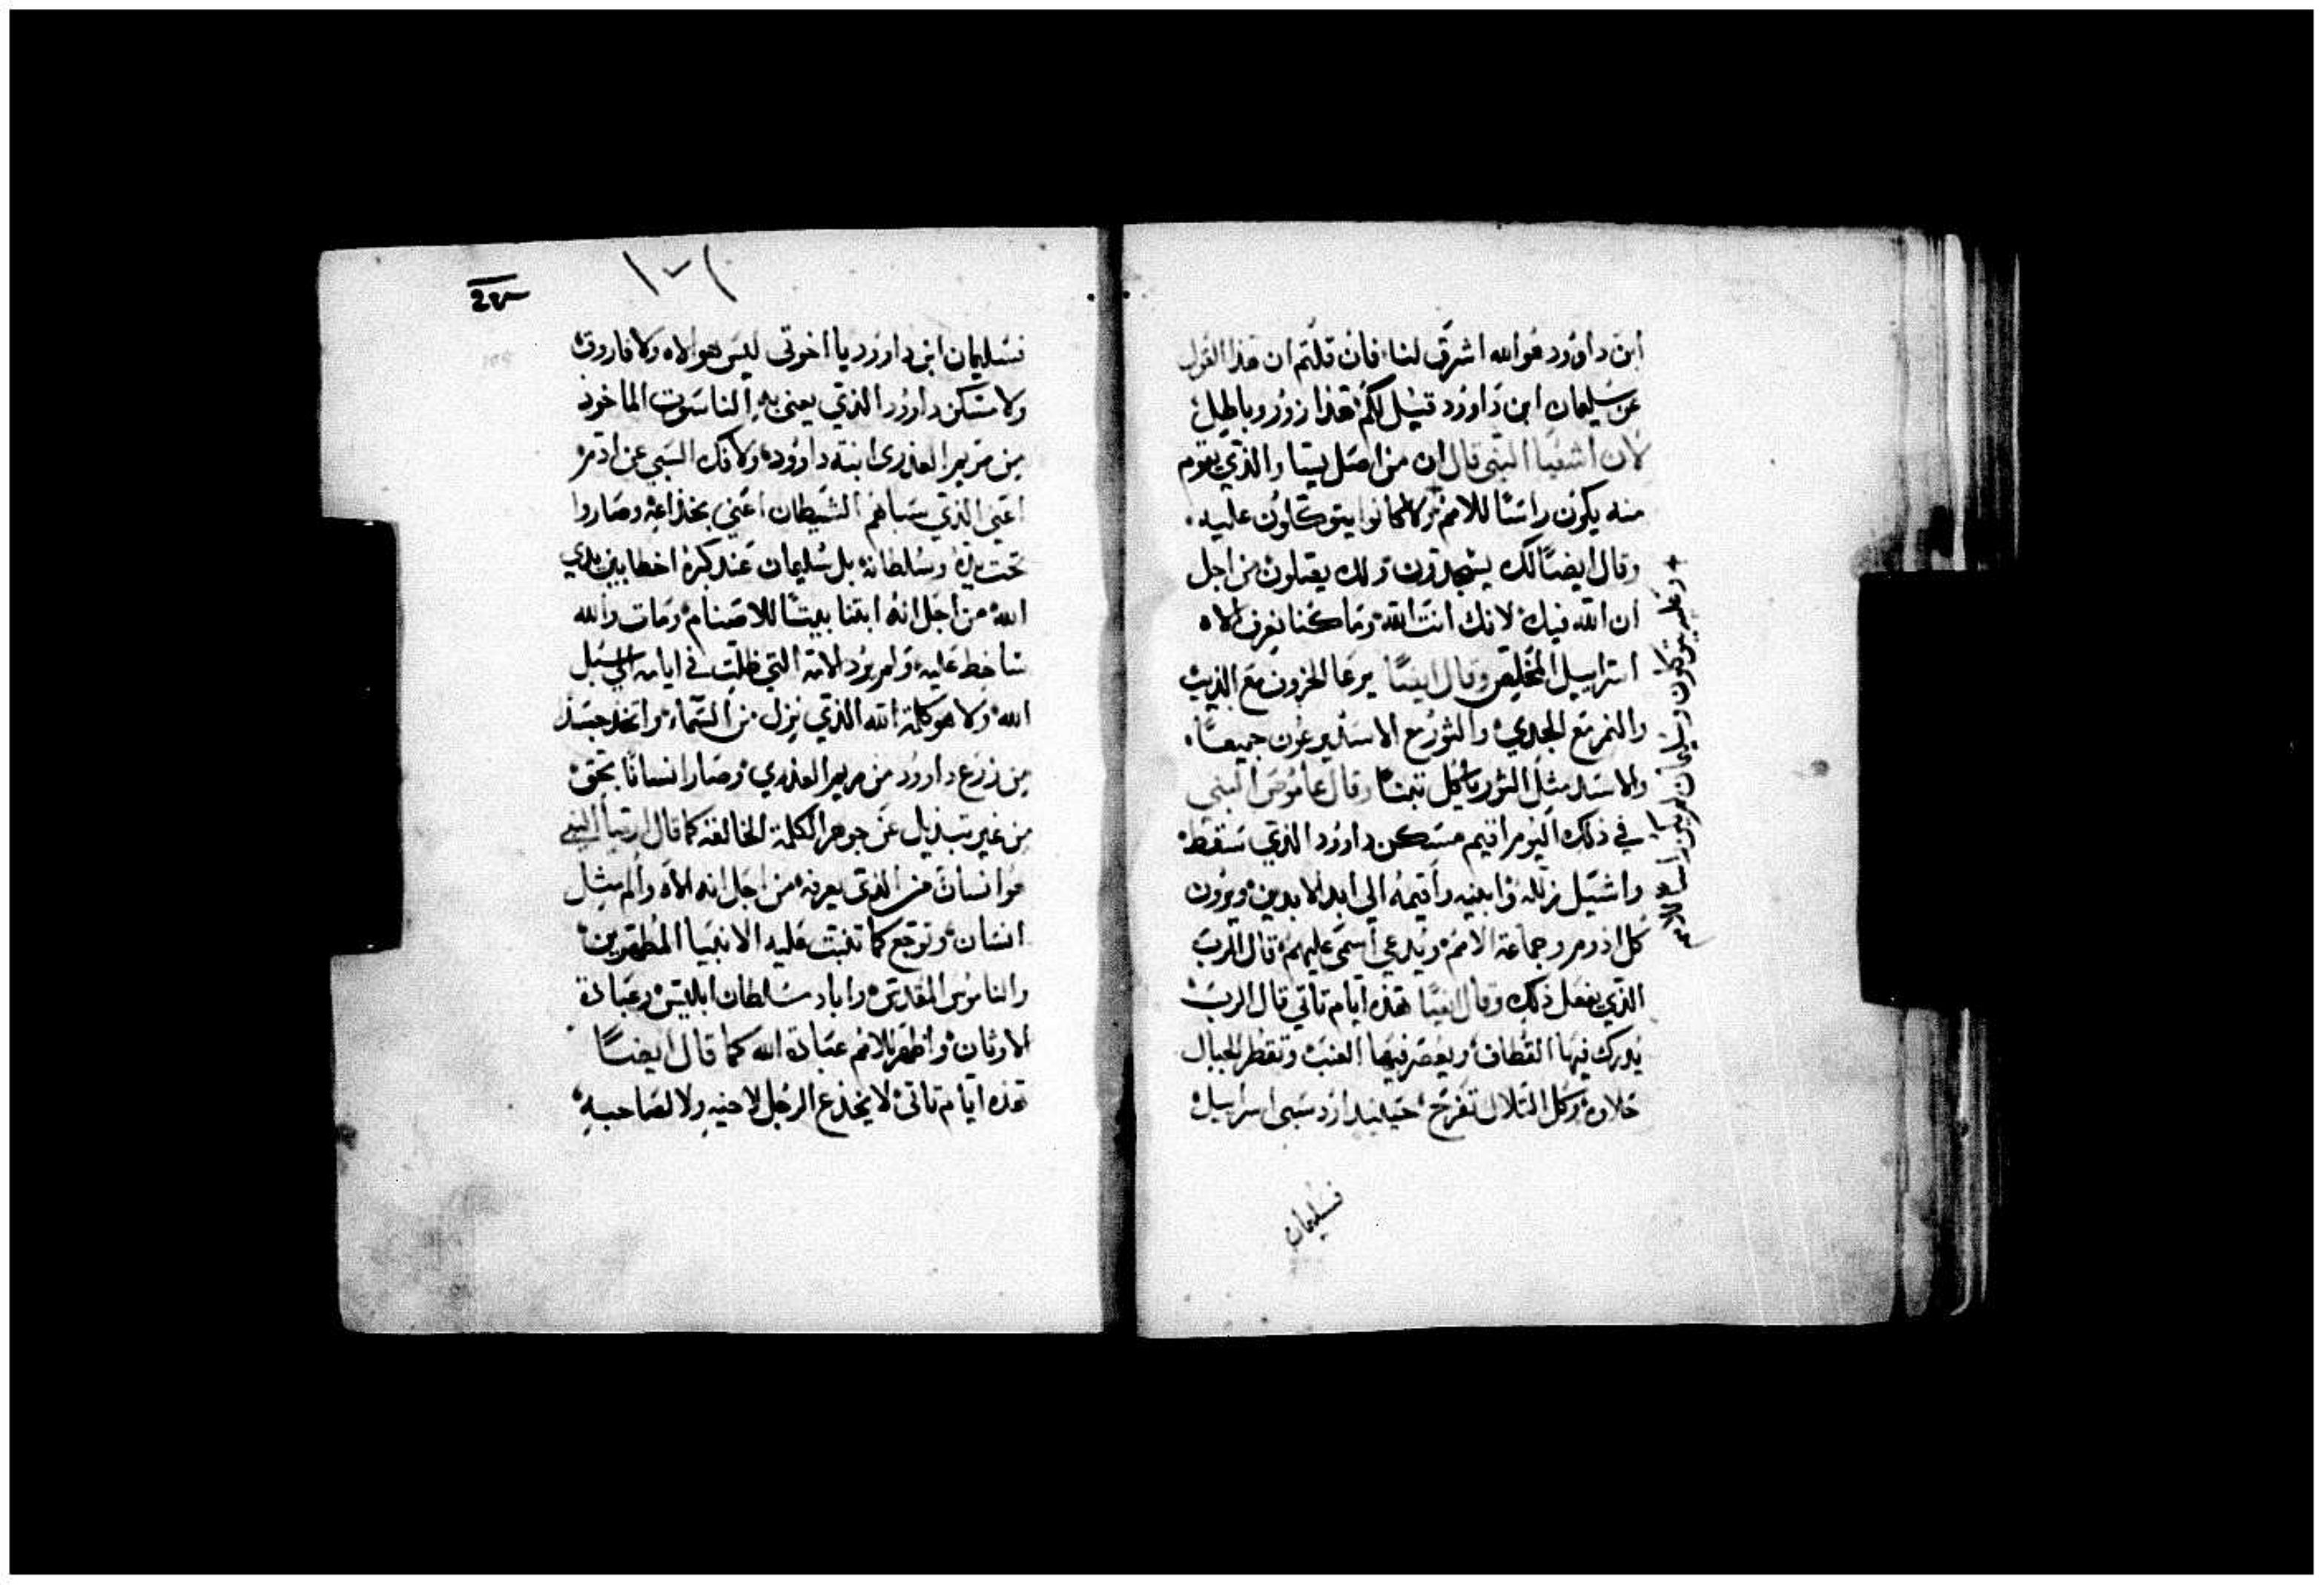 ابن داوود هو الله اشرق لنا فان قلتم ان هذا القول
عن سليمان ابن داوود قيل لكم هذا زور وباطل
لان اشعيا النبي قال ان من اصل يسا والذي يقوم
منه يكون راسًا للامم ولا كانوا يتوكلون عليه
وقال ايضًا لك يسجدون ولك يصلون من اجل
ان الله فيك لانك انت الله وما كنا نعرف الاه
اسراييل المخلص وقال ايضًا يرعا الخروف مع الذيب
والنمر مع الجدي والثور مع الاسد يرعون جميعًا
والاسد مثل الثور ياكل تبنًا وقال عاموص النبي
في ذلك اليوم اقيم مسكن داوود الذي سقط
واشيل زلله وابنيه واقيمه الي ابد الابدين ويرون
كل اذوم وجماعة الامم ويدعي اسمي عليهم قال الرب
الذي يفعل ذلك وقال ايضًا هذه ايام تاتي قال الرب
يدرك فيها القطاف ويعصر فيها العنب وتقطر الجبال
حلاوه وكل التلال تفرح حينيذ ارد سبي اسراييل
وعليه يتوكلون وسليمان لم يكن راسا للامم
فسليمان
١٠٦
فسليمان ابن داوود يا اخوتي ليس هو الاه ولا فاروق
ولا مسكن داوود الذي يعني به الناسوت الماخوذ
من مريم العذرى ابنة داوود ولا فك السبي عن ادم
اعني الذي سباهم الشيطان اعني بخداعه وصاروا
تحت يده وسلطانه بل سليمان عند كبره اخطا بين يدي
الله من اجل انه ابتنا بيتًا للاصنام ومات والله
ساخط عليه ولم يرد الامة التي ظلت في ايامه الي سبل
الله ولا هو كلمة الله الذي نزل من السماء واتخد جسد
من زرع داوود من مريم العذري وصار انسانًا بحق
من غير تبديل عن جوهر الكلمة الخالقة كما قال ارميا النبي
هو انسان من الذي يعرفه من اجل انه الاه والم مثل
انسان وتوجع كما تنبت عليه الانبيا المطهرين
والناموس المقدس واباد سلطان ابليس وعبادة
الاوثان واظهر للامم عبادة الله كما قال ايضًا
هذه ايام تاتي لا يخدع الرجل لاخيه ولا لصاحبه